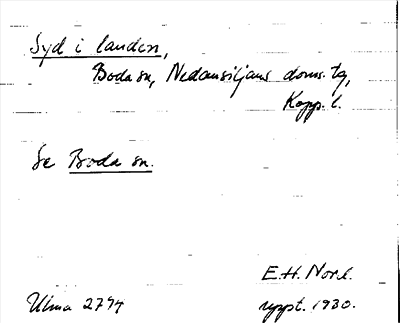 Syd i landen,
Boda sn, Nedansiljans doms. tg,
Kopp. l.
Se Boda sn.
E.H. Norl.
Ulma 2794 uppt. 1930.